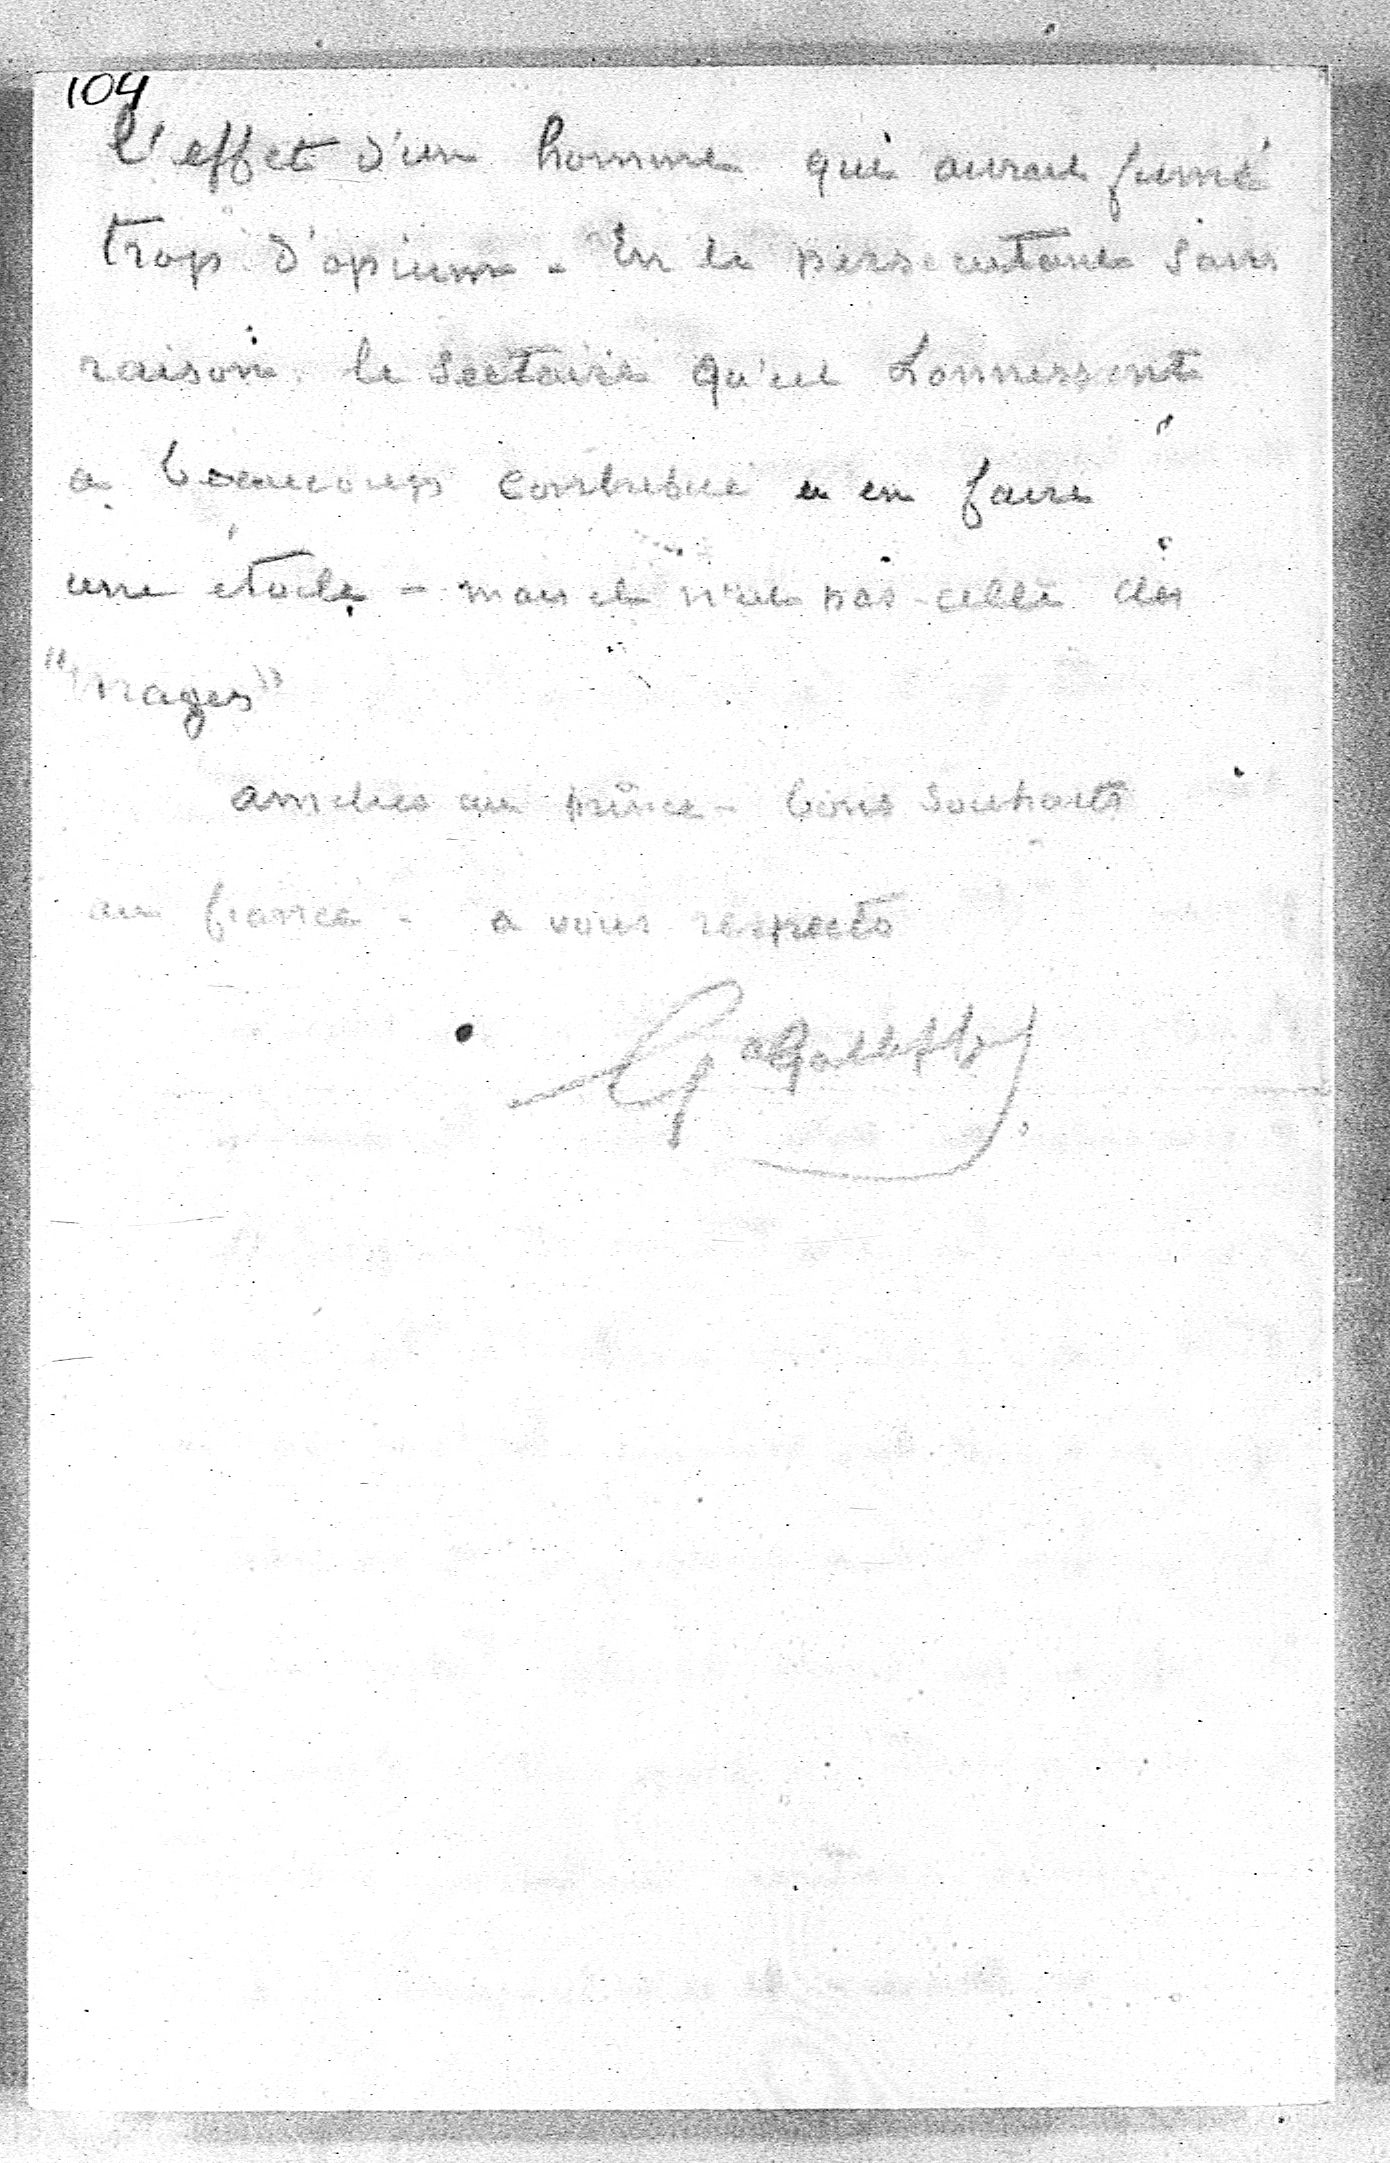 104
l'effet d'un homme qui aurait fumé
trop d'opium - En le persecutant sans
raison, le sectaire qu'est Lannessant
a beaucoup contribué a en faire
une étoile - mais ce n'est pas celle des
"mages"
amitiés au prince - bons souhaits
au fiancé - a vous respects
Gal Galliffet